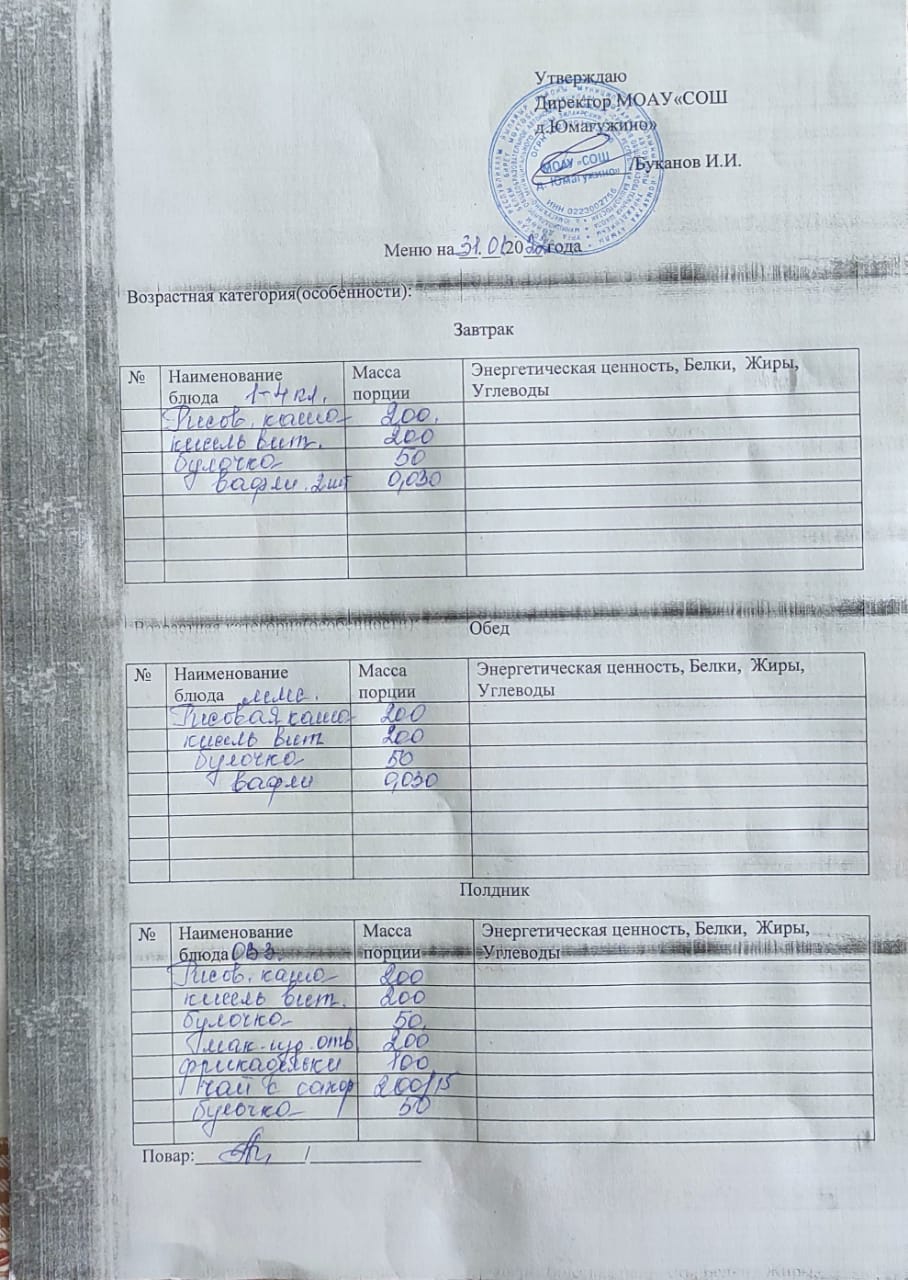 Утверждаю
Директор МОАУ«СОШ
д.Юмагужино»
/Буканов И.И.
МОАУ «СОШ
д. Юмагужино»
ИНН 0223002756
Меню на 31.01 20 года
Возрастная категория(особенности):
Завтрак
№ Наименование блюда 1-4 кл. Масса порции Энергетическая ценность, Белки, Жиры, Углеводы
Рисов. каша 200.
кисель вит. 200
булочка 50
вафли 2шт 0,030
Обед
№ Наименование блюда Масса порции Энергетическая ценность, Белки, Жиры, Углеводы
Рисовая каша 200
кисель вит 200
булочка 50
вафли 0,030
Полдник
№ Наименование блюда ОВЗ. Масса порции Энергетическая ценность, Белки, Жиры, Углеводы
Рисов. каша 200
кисель вит. 200
булочка 50.
мак. изд. отв 200
фрикадельки 100
чай с сахар 200/15
булочка 50
Повар: /